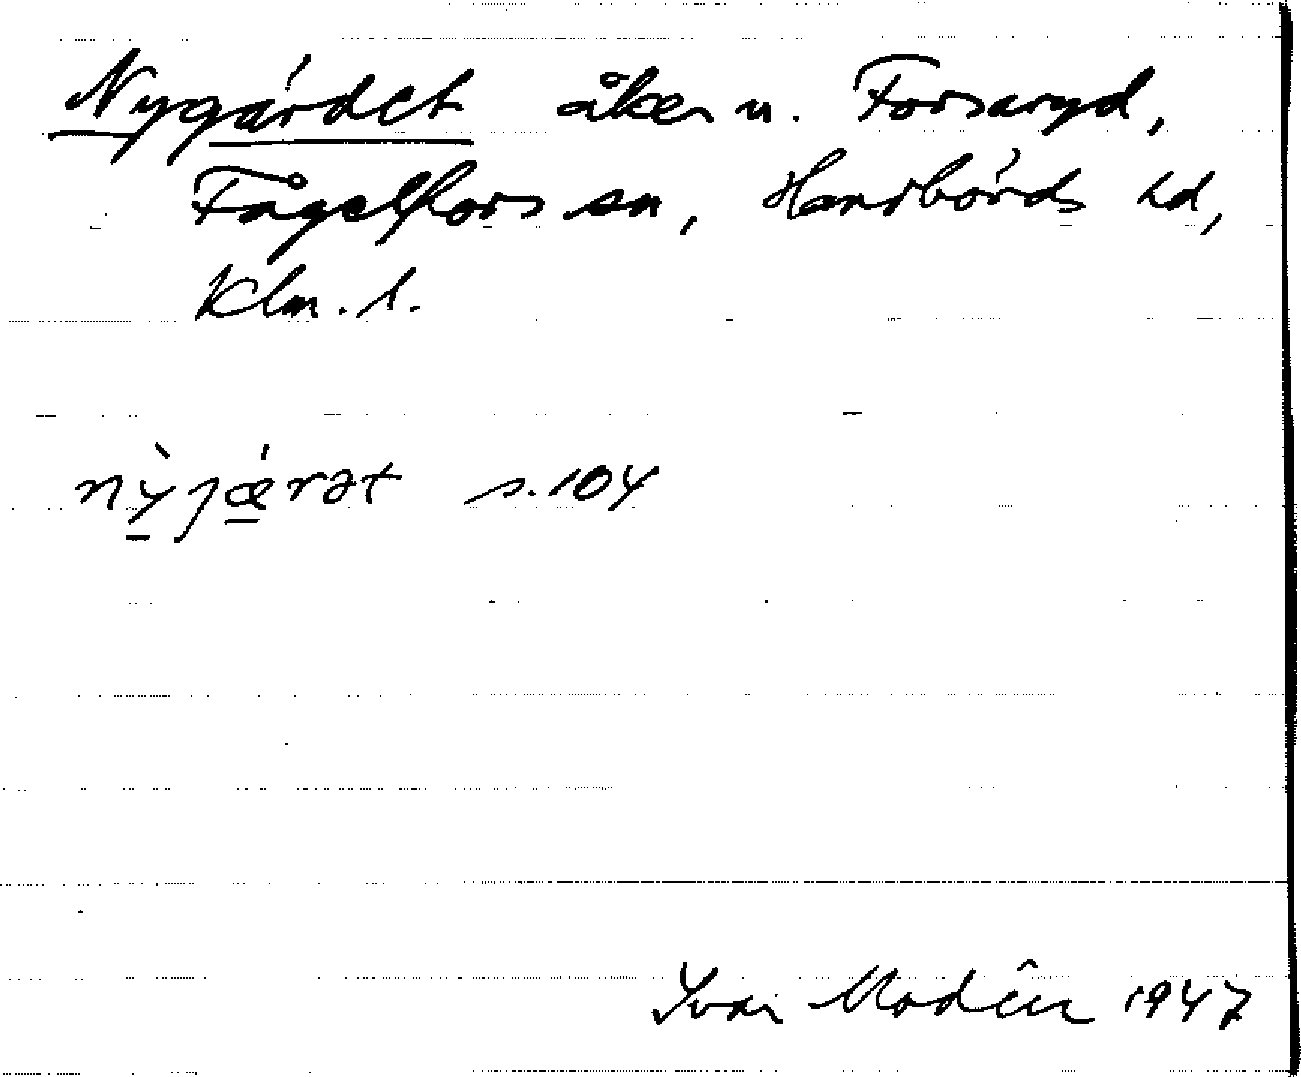 Nygärdet åker u. Forsaryd,
Fågelfors sn, Handbörds hd,
Klm. l.
nỳjǽrət s. 104
Ivar Modéer 1947